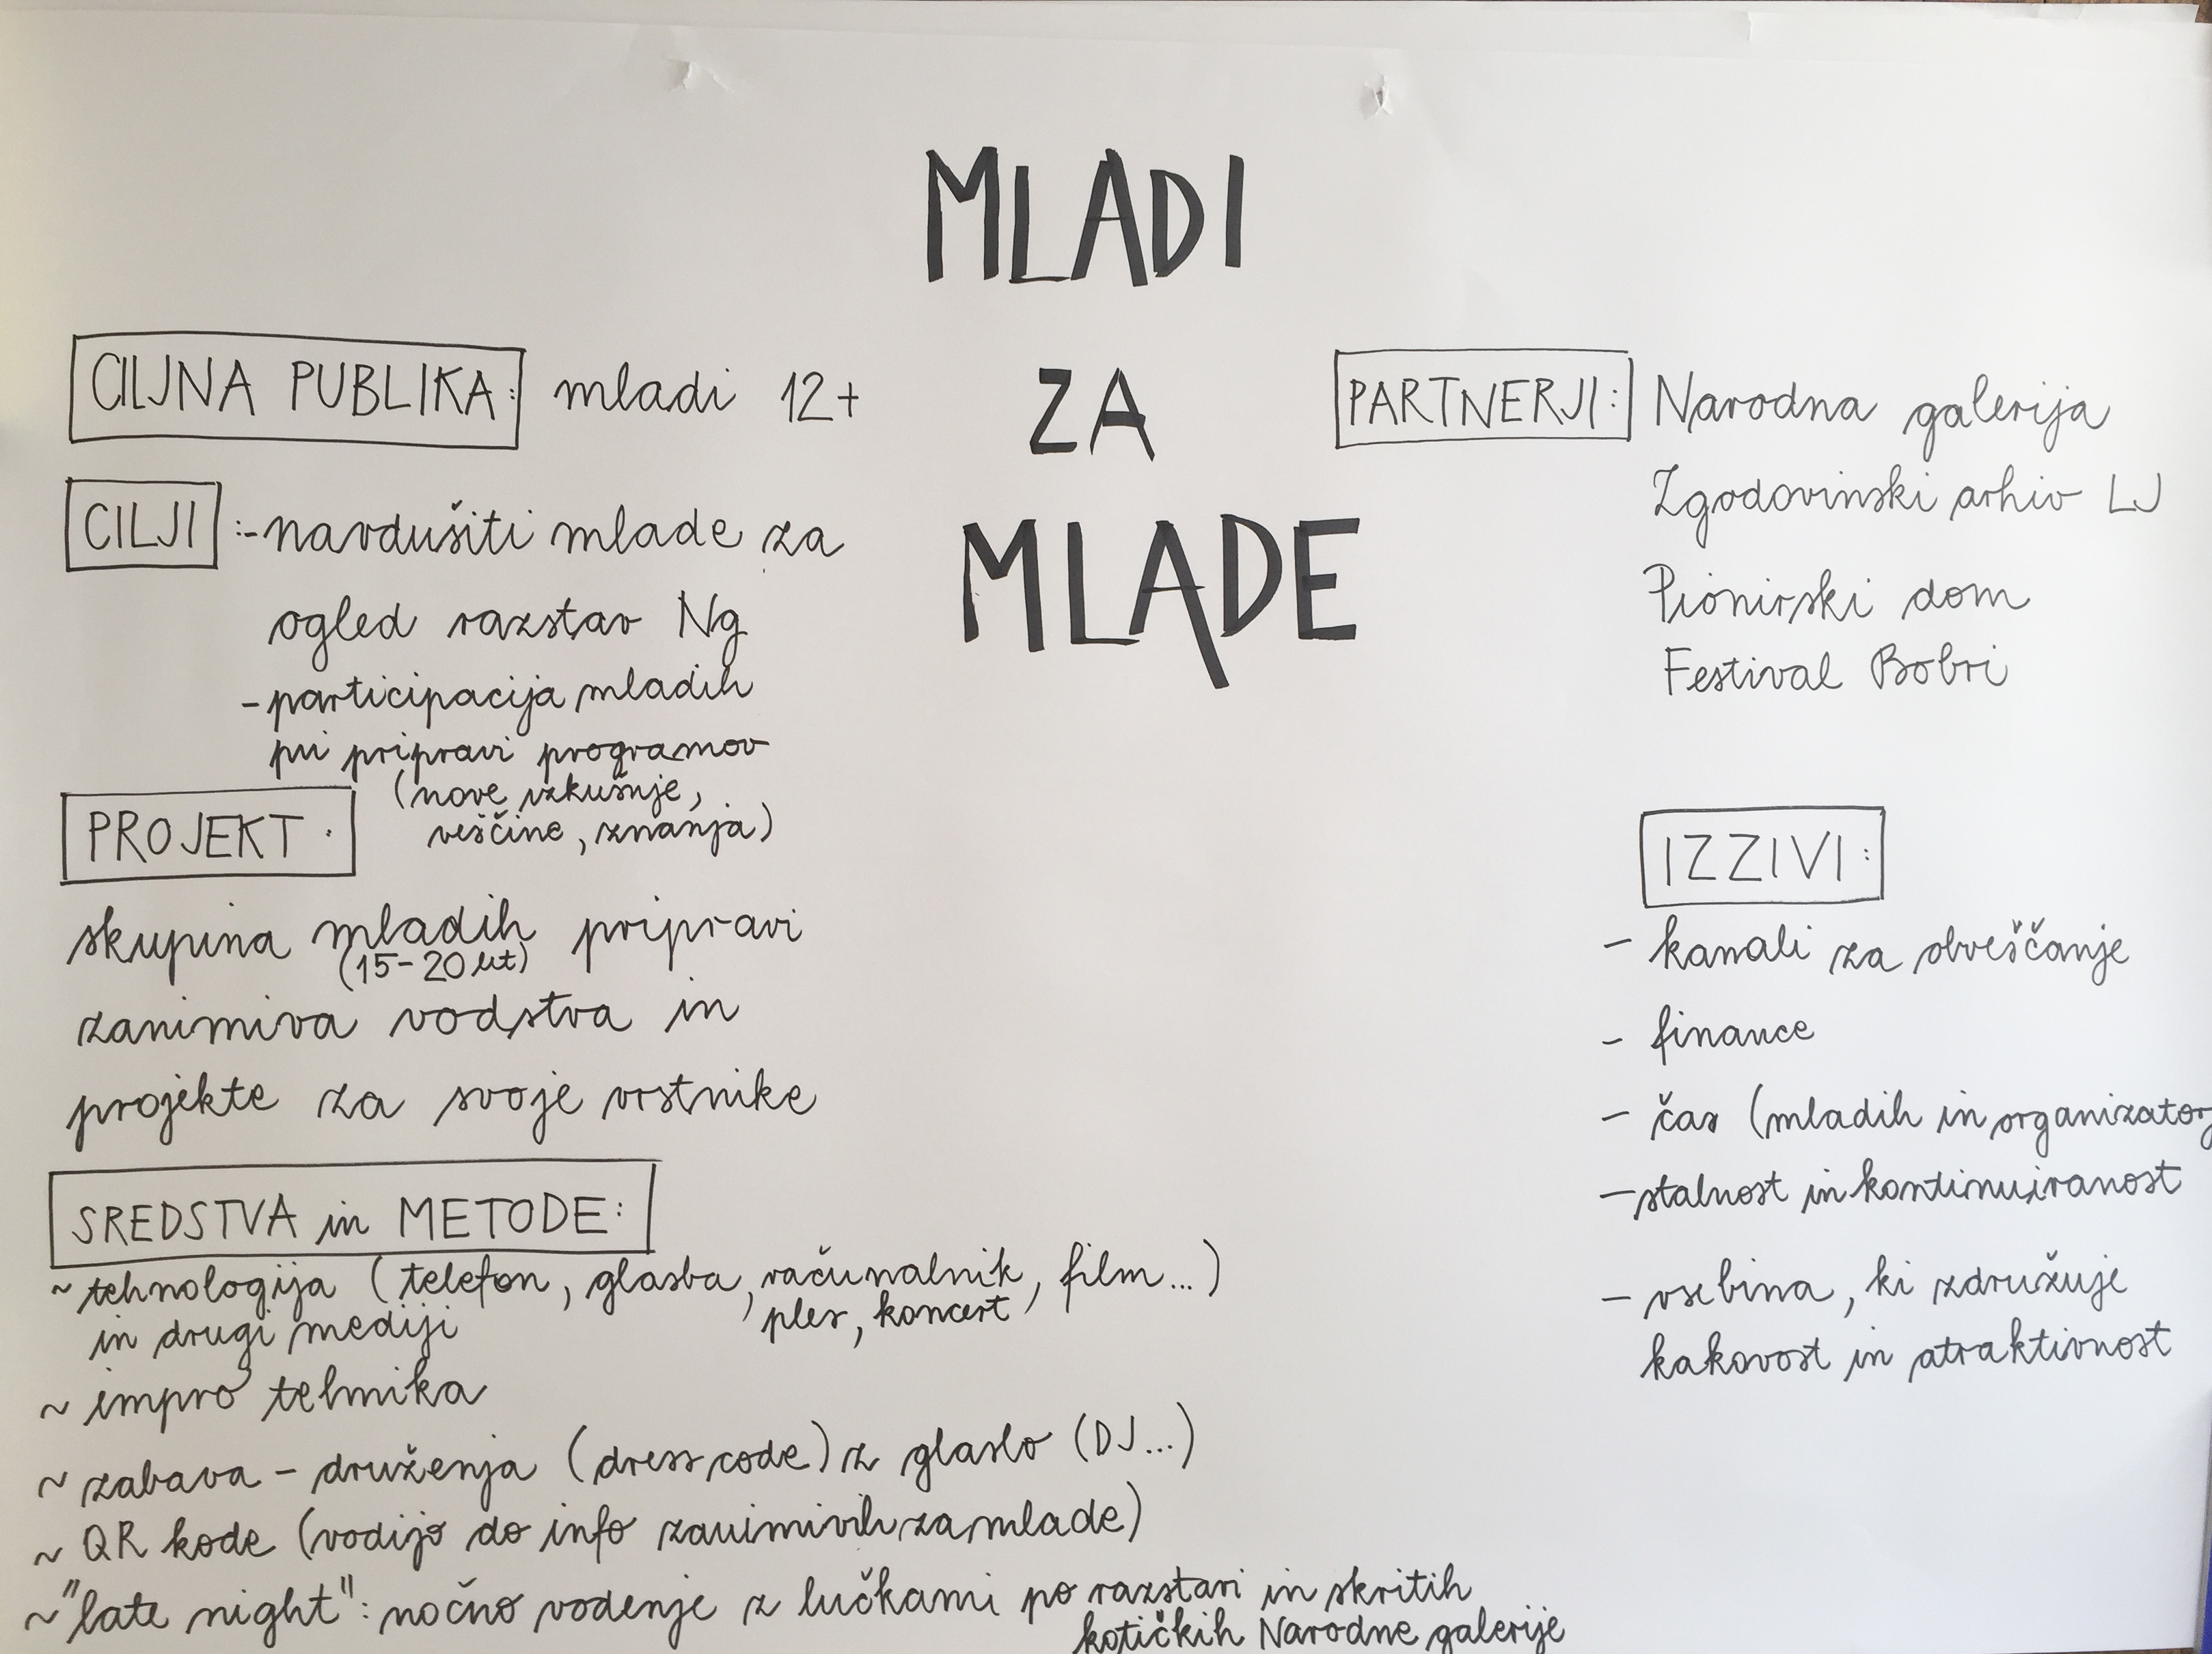 MLADI
ZA
MLADE
CILJNA PUBLIKA: mladi 12+
CILJI :- navdušiti mlade za
ogled razstav Ng
- participacija mladih
pri pripravi programov
(nove izkušnje,
veščine, znanja)
PROJEKT :
skupina mladih pripravi
(15-20 let)
zanimiva vodstva in
projekte za svoje vrstnike
SREDSTVA in METODE:
~ tehnologija (telefon, glasba, računalnik, film...)
, ples, koncert
in drugi mediji
~ impro tehnika
~ zabava - druženja (dress code) z glasbo (DJ...)
~ QR kode (vodijo do info zanimivih za mlade)
~ "late night": nočno vodenje z lučkami po razstavi in skritih
kotičkih Narodne galerije
PARTNERJI: Narodna galerija
Zgodovinski arhiv LJ
Pionirski dom
Festival Bobri
IZZIVI:
- kanali za obveščanje
- finance
- čas (mladih in organizatorj
- stalnost in kontinuiranost
- vsebina, ki združuje
kakovost in atraktivnost